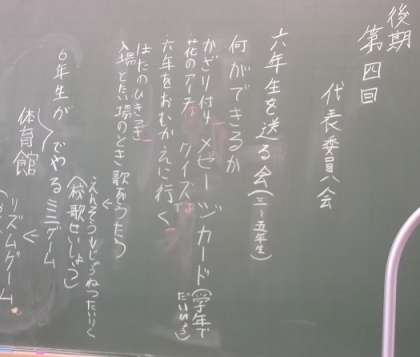 後期
第四回
代表委員会
六年生を送る会(三〜五年生)
何ができるか
かざり付け メッセージカード(学年で
花のアーチ クイズ
六年をおむかえに行く
はたのひきつぎ
入場 たい場のとき 歌をうたう
(校歌せいしょう)
6年生が でやるミニゲーム
体育館
リズムゲーム